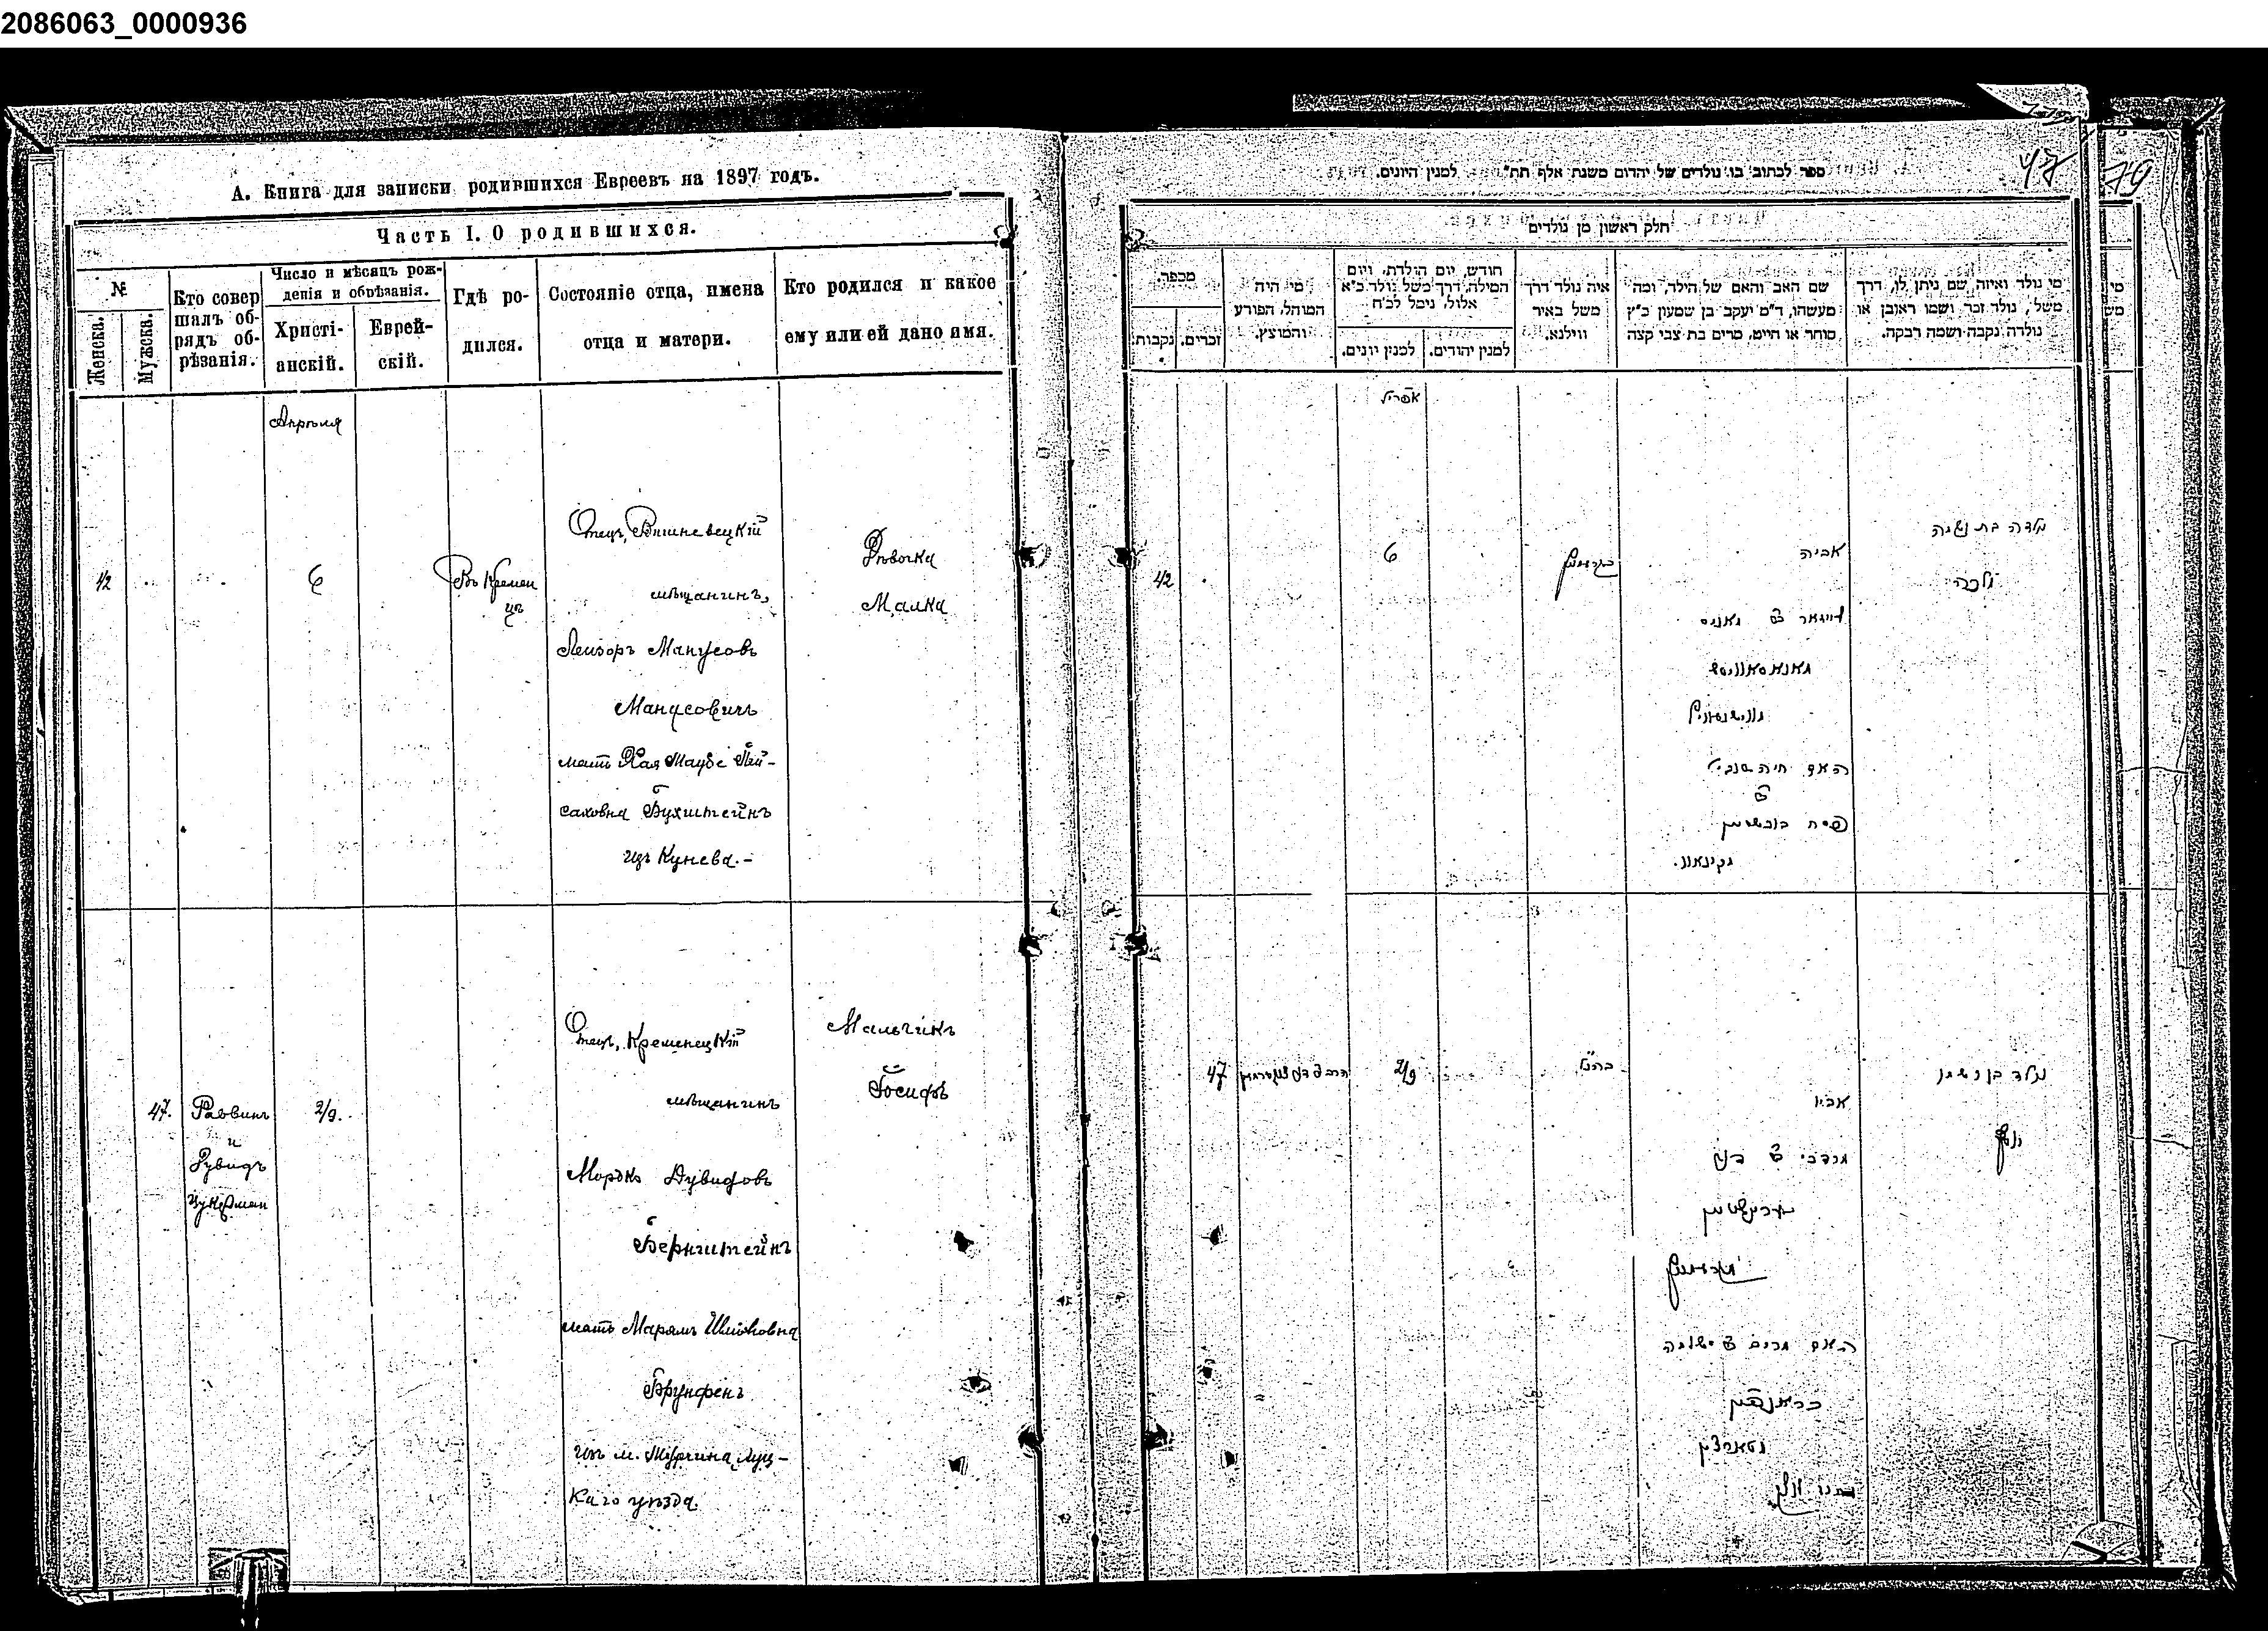 2086063_0000936
А. Книга для записки родившихся Евреевъ на 1897 годъ.
Часть I. О родившихся.
№
Женска.
Мужска.
Кто совер
шалъ об-
рядъ об-
рѣзанія.
Число и мѣсяцъ рож-
денія и обрѣзанія.
Христі-
анскій.
Еврей-
скій.
Гдѣ ро-
дился.
Состояніе отца, имена
отца и матери.
Кто родился и какое
ему или ей дано имя.
Апрѣля
42
6
Въ Кремен
цѣ
Отецъ, Вишневецкій
мѣщанинъ,
Лейзоръ Манусовъ
Манусовичъ
мать Хая Тауба Пей-
саховна Бухштейнъ
изъ Кунева.-
Дѣвочка
Малка
47.
Раввинъ
и
Дувидъ
Цукерман
2/9.
Отецъ, Кременецкій
мѣщанинъ
Мордко Дувидовъ
Бернштейнъ
мать Марямъ Шлiомовна
из м. Торчина, Луц-
каго уѣзда.
Мальчикъ
Іосифъ
47 79
ספר לכתוב בו נולדים של יהדום משנת אלף תת"   למנין היונים.
חלק ראשון מן נולדים
מספר.
נקבות
זכרים.
מי היה
המוהל, הפורע
והמוצץ.
חודש, יום הולדת, ויום
המילה, דרך משל נולד כ"א
אלול, נימל לכ"ח
למנין יונים.
למנין יהודים.
איה נולד דרך
משל באיר
ווילנא.
שם האב והאם של הילד, ומה
מעשהו, ד"מ יעקב בן שמעון כ"ץ
סוחר או חייט, מרים בת צבי קצה
מי נולד ואיזה שם ניתן לו, דרך
משל, נולד זכר ושמו ראובן או
נולדה נקבה ושמה רבקה.
אפריל
42
6
אביה
האם חיה
פסח בוכשטיין
נולדה בת ושמה
מלכה
47
2/9
אביו
מרדכי ב"ר דוד
בערינשטיין
האם מרים ב"ר שלמה
נולד בן ושמו
יוסף